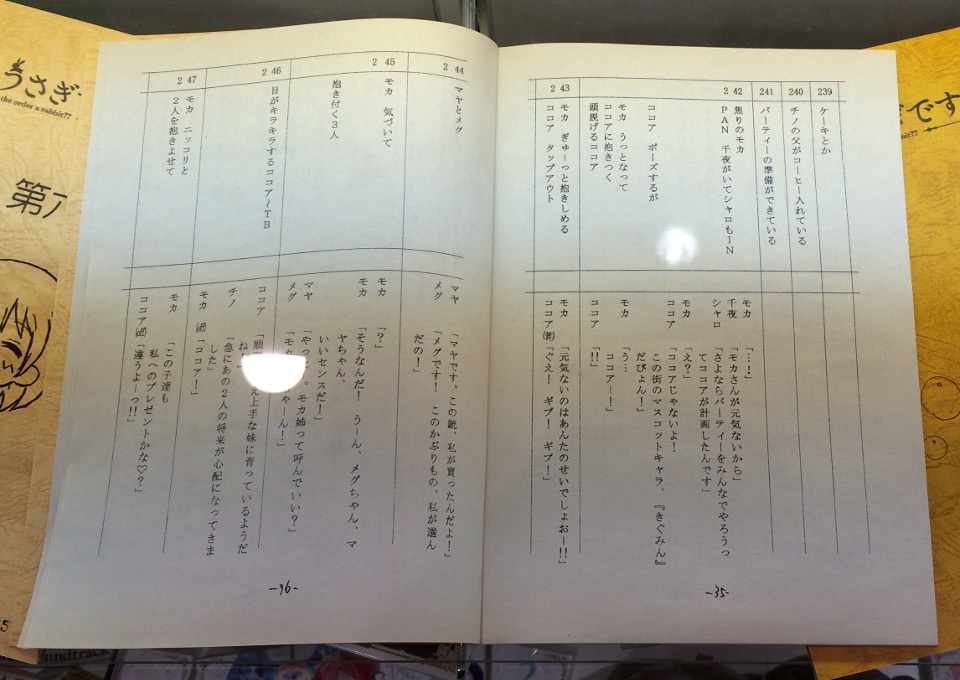 239
ケーキとか
240
チノの父がコーヒー入れている
241
パーティーの準備ができている
242
焦りのモカ
PAN 千夜がいてシャロもIN
モカ 「…!」
千夜 「モカさんが元気ないから」
シャロ 「さよならパーティーをみんなでやろうっ
てココアが計画したんです」
モカ 「え?」
ココア ポーズするが
ココア 「ココアじゃないよ!
この街のマスコットキャラ、『きぐみん』
だぴょん!」
モカ うっとなって
ココアに抱きつく
モカ 「う…
ココアー!」
頭脱げるココア
ココア 「!!」
243
モカ ぎゅーっと抱きしめる
ココア タップアウト
モカ 「元気ないのはあんたのせいでしょおー!!」
ココア 「ぐえ! ギブ! ギブ!」
-35-
244
マヤとメグ
マヤ 「マヤです。この銃、私が買ったんだよ!」
メグ 「メグです! このかぶりもの、私が選ん
だの!」
245
モカ 気づいて
モカ 「?」
モカ 「そうなんだ! うーん、メグちゃん、マ
ヤちゃん、
いいセンスだ!」
抱き付く3人
マヤ 「やっ 。モカ姉って呼んでいい?」
メグ 「モカ ゃーん!」
246
目がキラキラするココア~TB
ココア 「順 え上手な妹に育っているようだ
ね!
チノ 「急にあの2人の将来が心配になってきま
した」
247
モカ ニッコリと
2人を抱きよせて
モカ 「ココア!」
モカ 「この子達も
私へのプレゼントかな♡?」
ココア 「違うよーっ!!」
-36-
うさぎ
the order a rabbit??
第
です
bit??
5
oundtrack